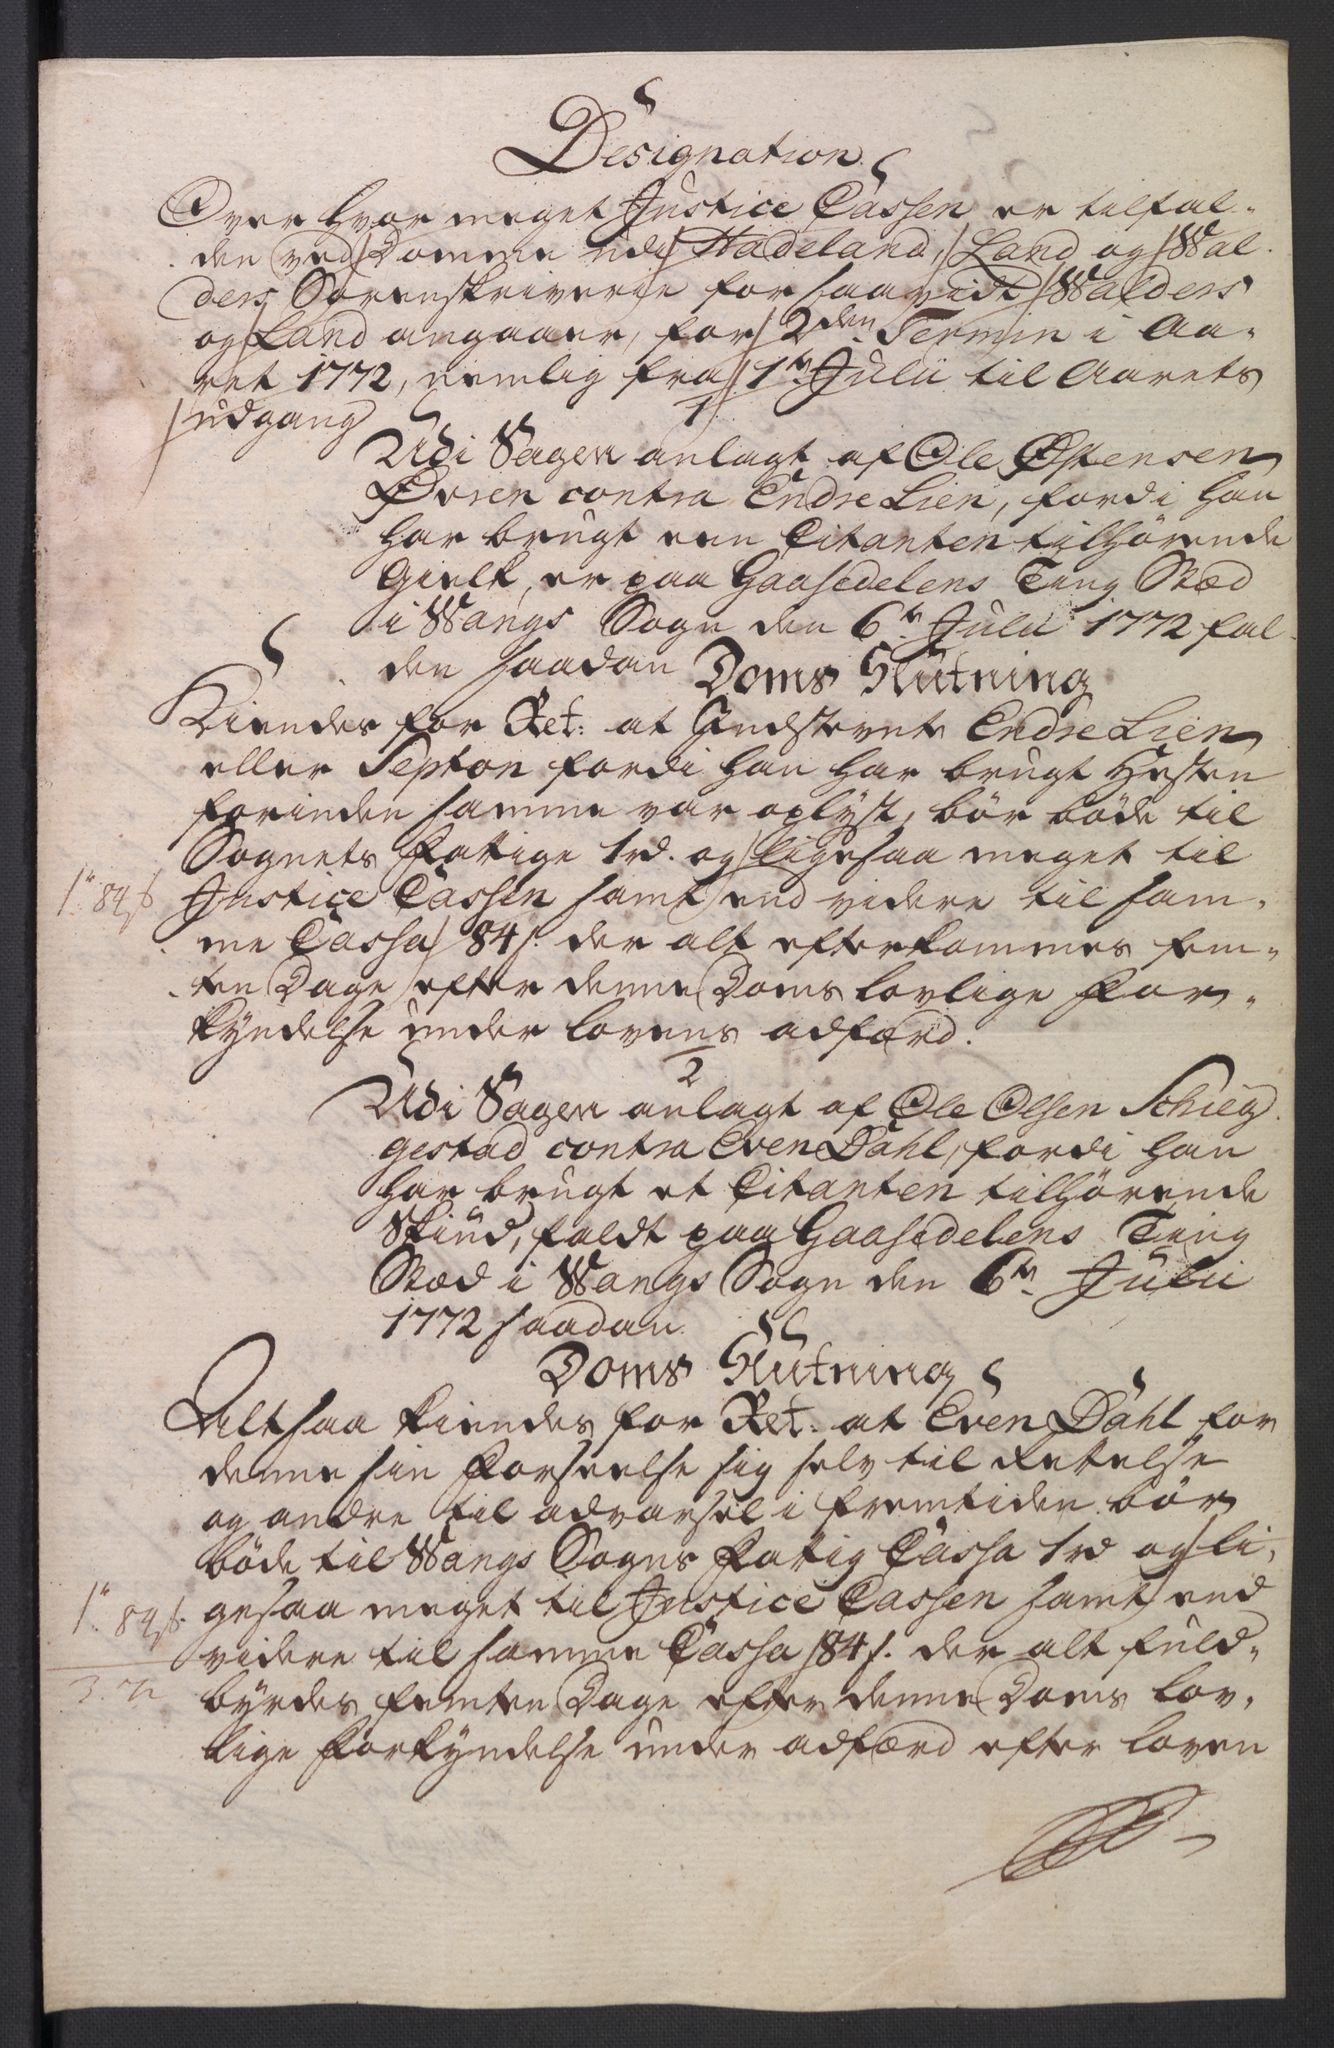 Designation
Over hvor meget Justice Cassen er tilfal-
den ved Domme udi Hadeland, Land og Wal-
ders Sorenskriverie for saavidt Walders
og Land angaaer, for 2den Termin i Aa-
ret 1772, nemlig fra 1te Julii til Aarets
udgang
1
Udi Sagen anlagt af Ole Østensen
Øvren contra Endre Lien, fordi han
har brugt een Citanten tilhørende
er paa Gaasedelens Ting Stæd
i Wangs Sogn den 6te Julii 1772 fal-
den saadan Doms Slutning
Kiendes for Ret: at Indstevnte Endre Lien
eller Septon fordi han har brugt Hesten
forinden samme var oplyst, bör böde til
Sognets Fattige 1rd. og ligesaa meget til
1" 84ß Justice Cassen samt end videre til sam-
me Cassa 84 s. der alt efterkommes fem-
ten Dage efter denne Doms lovlige For-
kyndelse under lovens adfærd.
2
Udi Sagen anlagt af Ole Olsen Schieg-
gestad contra Even Dahl, fordi han
har brugt et Citanten tilhörende
Skind, faldt paa Gaasedelens Ting
Stæd i Wangs Sogn den 6te Julii
1772 saadan
Doms Slutning
Altsaa kiendes for Ret: at Even Dahl for
denne sin Forseelse sig selv til Rettelse
og andre til advarsel i fremtiden bör
böde til Wangs Sogns Fattig Cassa 1rd og li-
1" 84ß. gesaa meget til Justice Cassen samt end
videre til samme Cassa 84 s. der alt fuld-
3. 72 byrdes femten Dage efter denne Doms lov-
lige Forkyndelse under adfærd efter loven